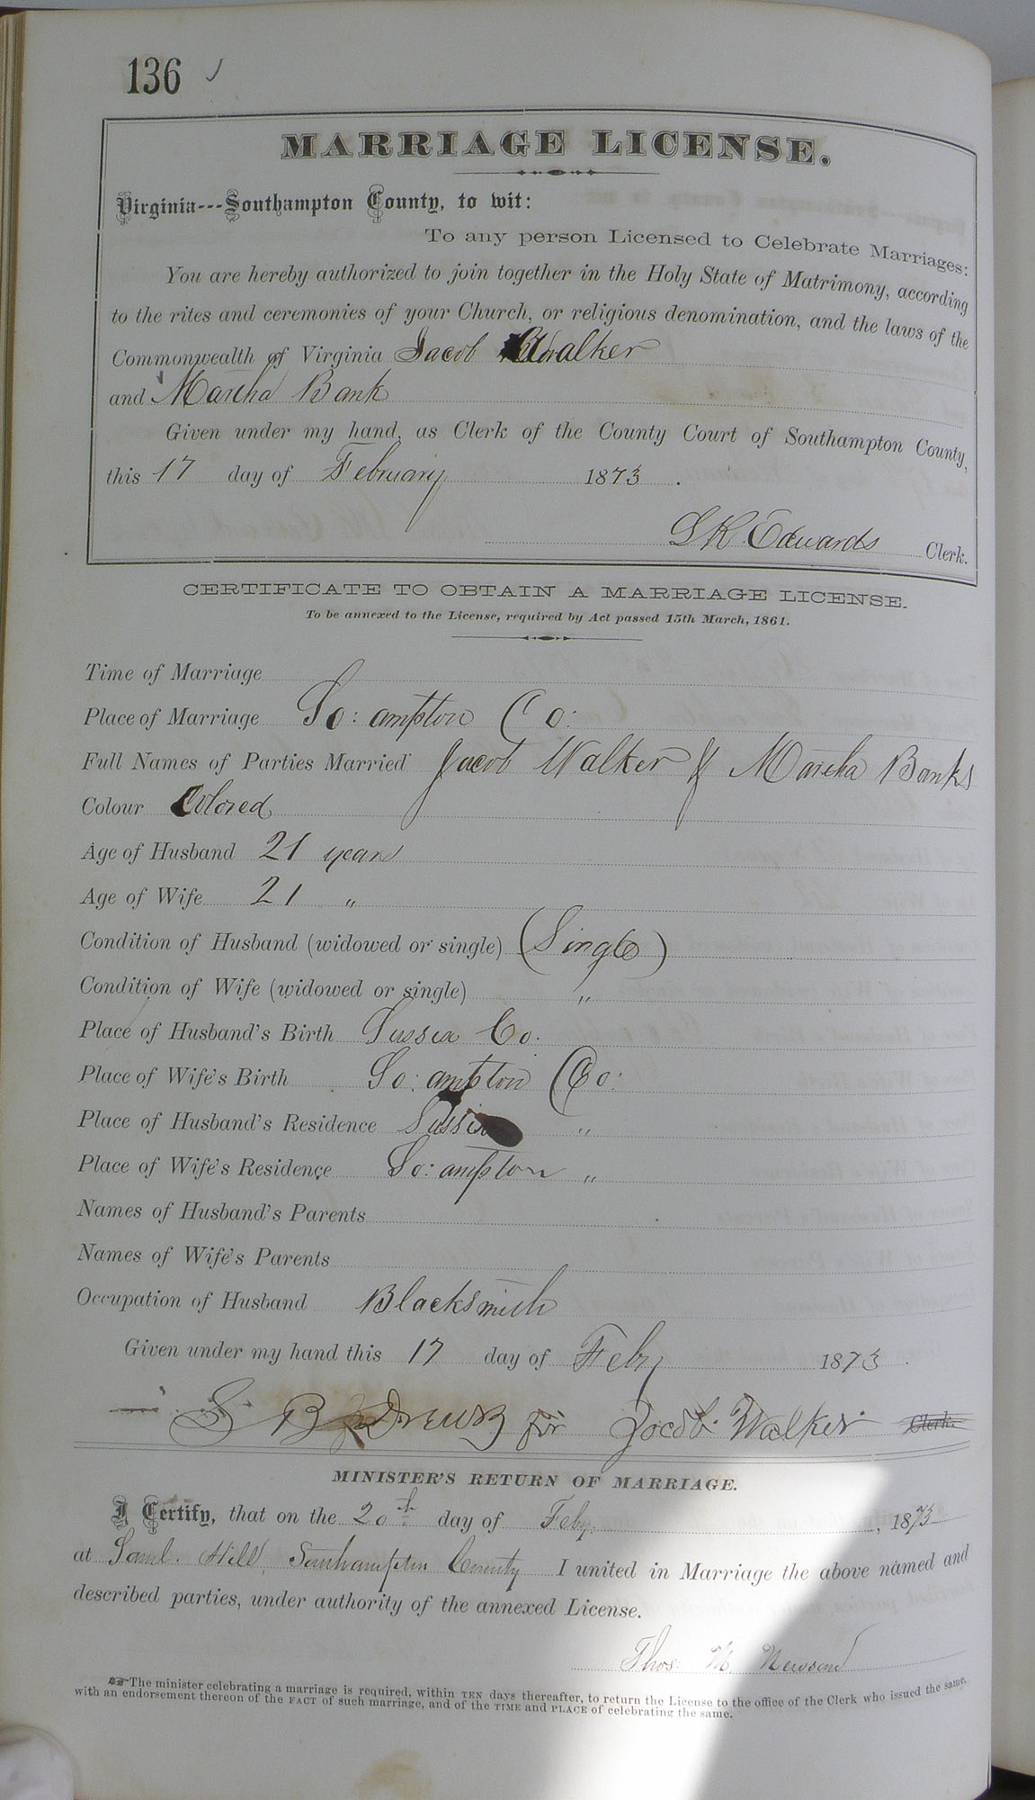 136
MARRIAGE LICENSE.
Virginia---Southampton County, to wit:
To any person Licensed to Celebrate Marriages:
You are hereby authorized to join together in the Holy State of Matrimony, according
to the rites and ceremonies of your Church, or religious denomination, and the laws of the
Commonwealth of Virginia Jacob Walker
and Martha Bank
Given under my hand, as Clerk of the County Court of Southampton County,
this 17 day of February 1873.
L R Edwards Clerk.
CERTIFICATE TO OBTAIN A MARRIAGE LICENSE.
To be annexed to the License, required by Act passed 15th March, 1861.
Time of Marriage
Place of Marriage So: ampton Co:
Full Names of Parties Married Jacob Walker & Martha Banks
Colour Colored
Age of Husband 21 years
Age of Wife 21 "
Condition of Husband (widowed or single) (Single)
Condition of Wife (widowed or single) "
Place of Husband's Birth Sussex Co.
Place of Wife's Birth So: ampton Co:
Place of Husband's Residence Sussex "
Place of Wife's Residence So: ampton "
Names of Husband's Parents
Names of Wife's Parents
Occupation of Husband Blacksmith
Given under my hand this 17 day of Feby 1873.
S B Drewry for Jacob Walker Clerk.
MINISTER'S RETURN OF MARRIAGE.
I Certify, that on the 20th day of Feby, 1873
at Saml. Hill, Southampton County I united in Marriage the above named and
described parties, under authority of the annexed License.
Thos. N. Newsom
The minister celebrating a marriage is required, within TEN days thereafter, to return the License to the office of the Clerk who issued the same,
with an endorsement thereon of the FACT of such marriage, and of the TIME and PLACE of celebrating the same.